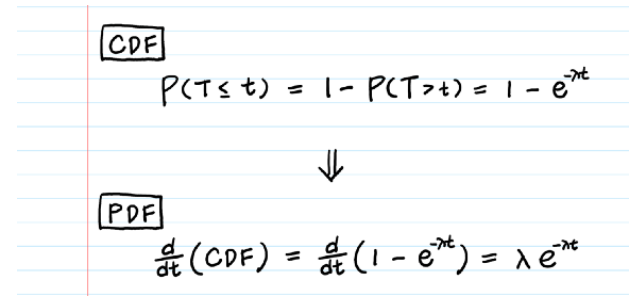 CDF
P(T ≤ t) = 1 - P(T > t) = 1 - e^{-λt}
⇓
PDF
d/dt (CDF) = d/dt (1 - e^{-λt}) = λ e^{-λt}